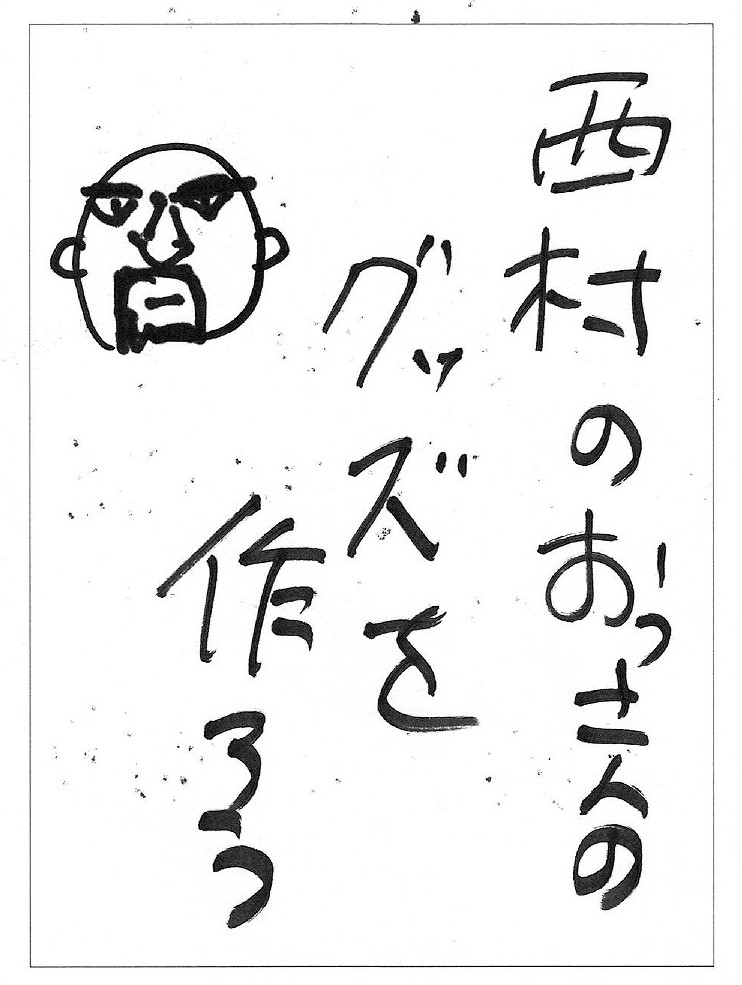 西村のおっさんの
グッズを
作ろう